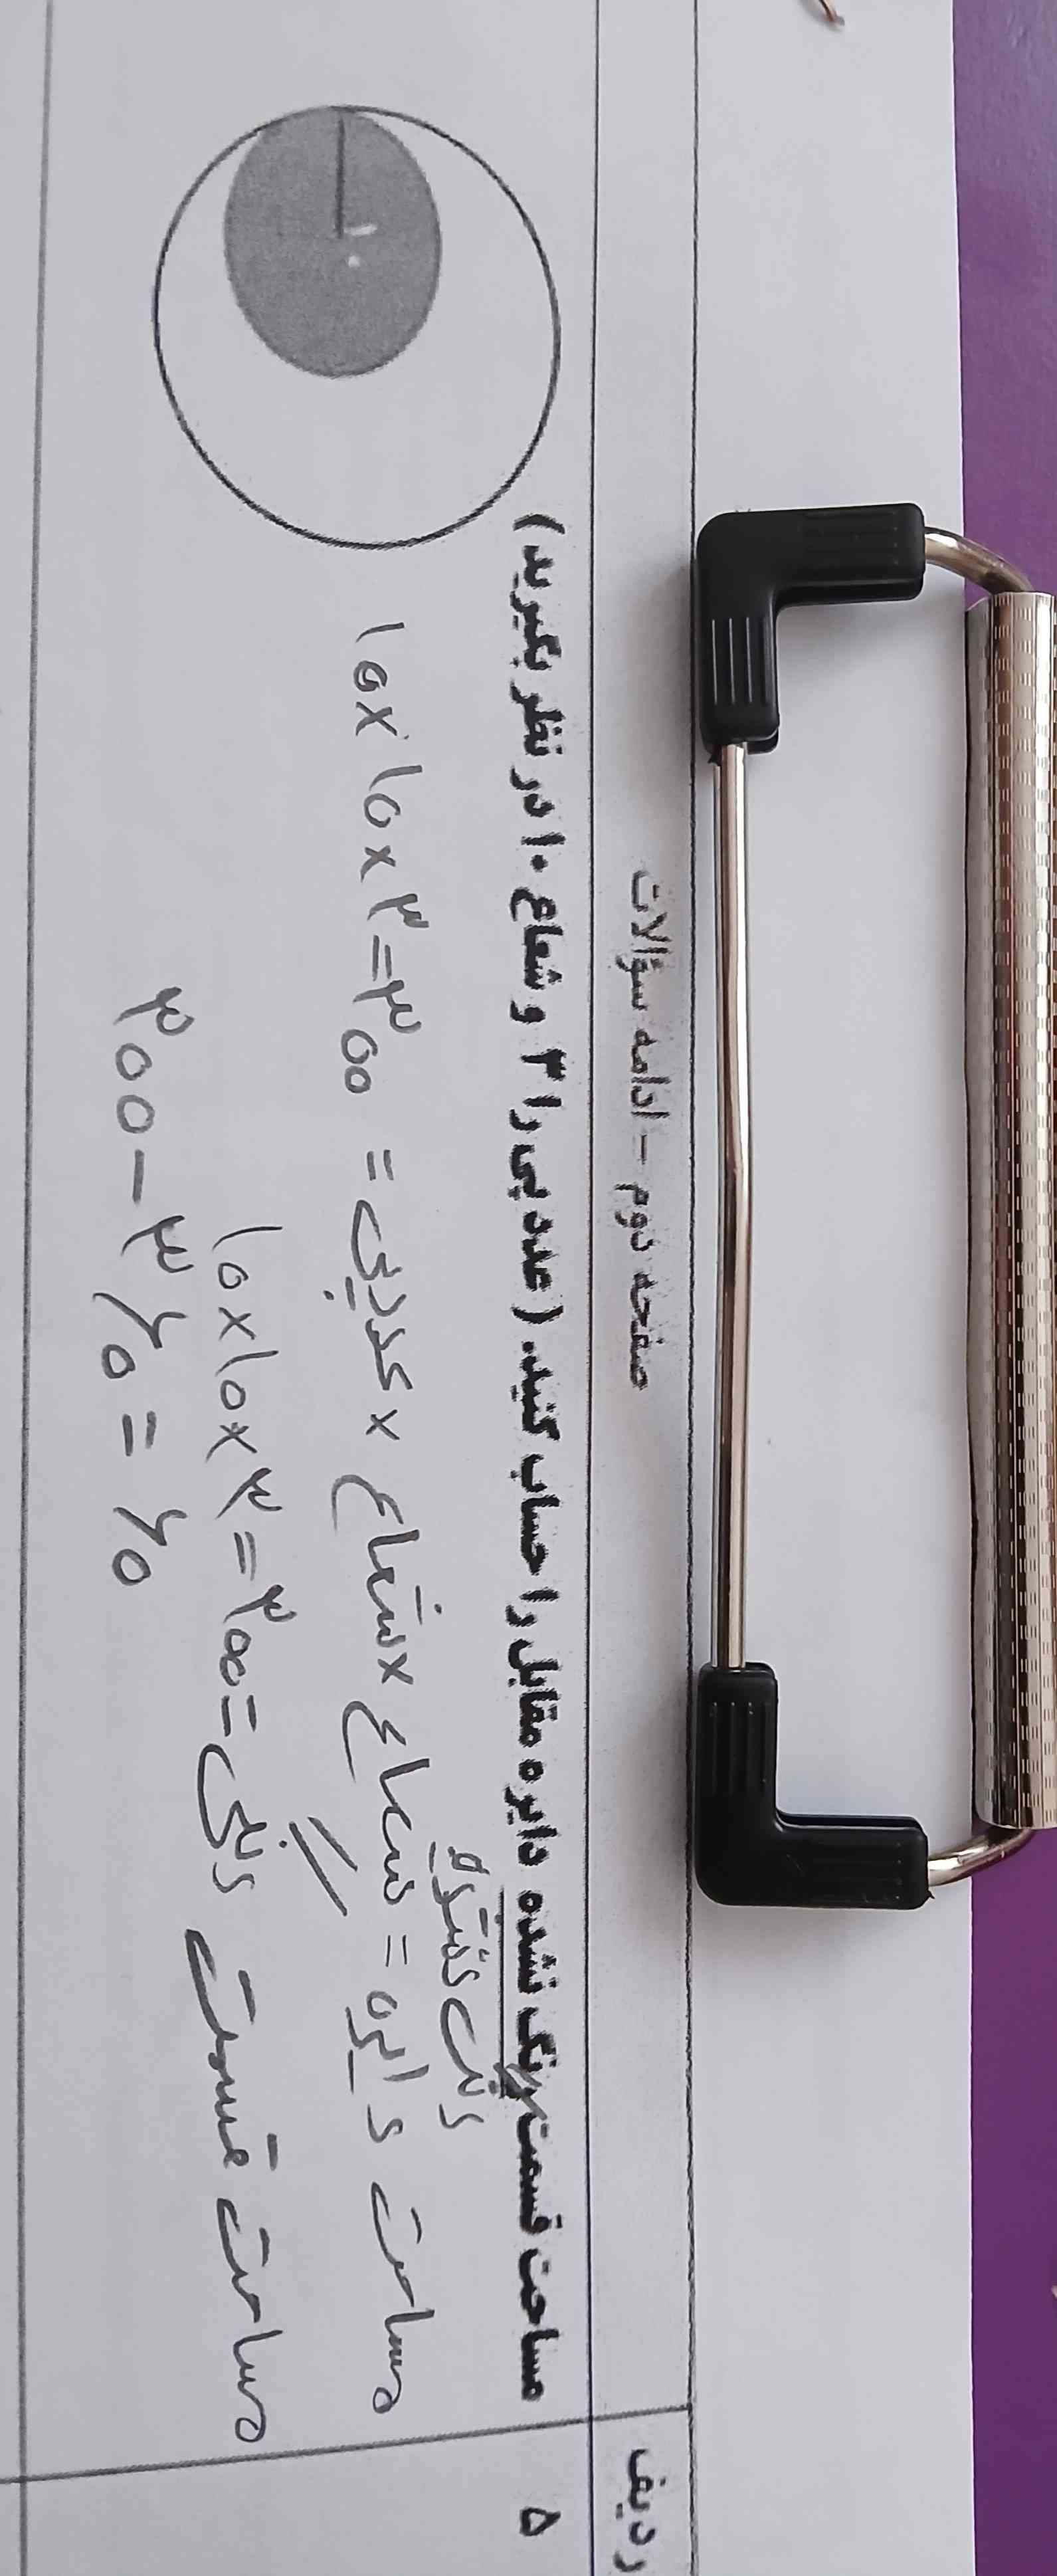 ردیف
صفحه دوم – ادامه سؤالات
۵
مساحت قسمت رنگ نشده دایره مقابل را حساب کنید. (عدد پی را ۳ و شعاع ۱۰ در نظر بگیرید)
رنگ نشده
مساحت دایره = شعاع × شعاع × عدد پی = ۱۰×۱۰×۳=۳۰۰
مساحت قسمت رنگی = ۱۰×۱۰×۳=۳۰۰
۳۰۰ – ۳۶۰ = ۶۰